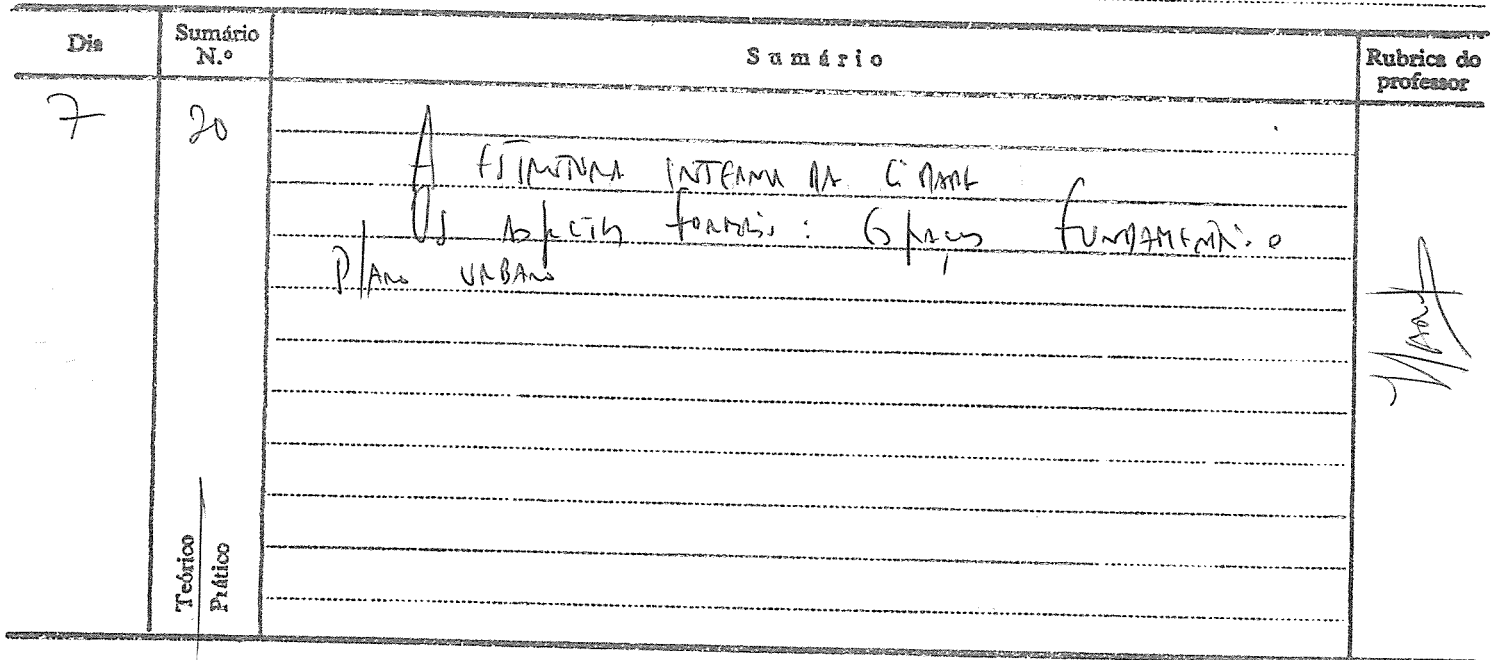 Dia
Sumário N.º
Sumário
Rubrica do professor
7
20
A ESTRUTURA INTERNA DA CIDADE
Os aspectos formais: Espaços FUNDAMENTAIS. O
Plano URBANO
Teórico
Prático